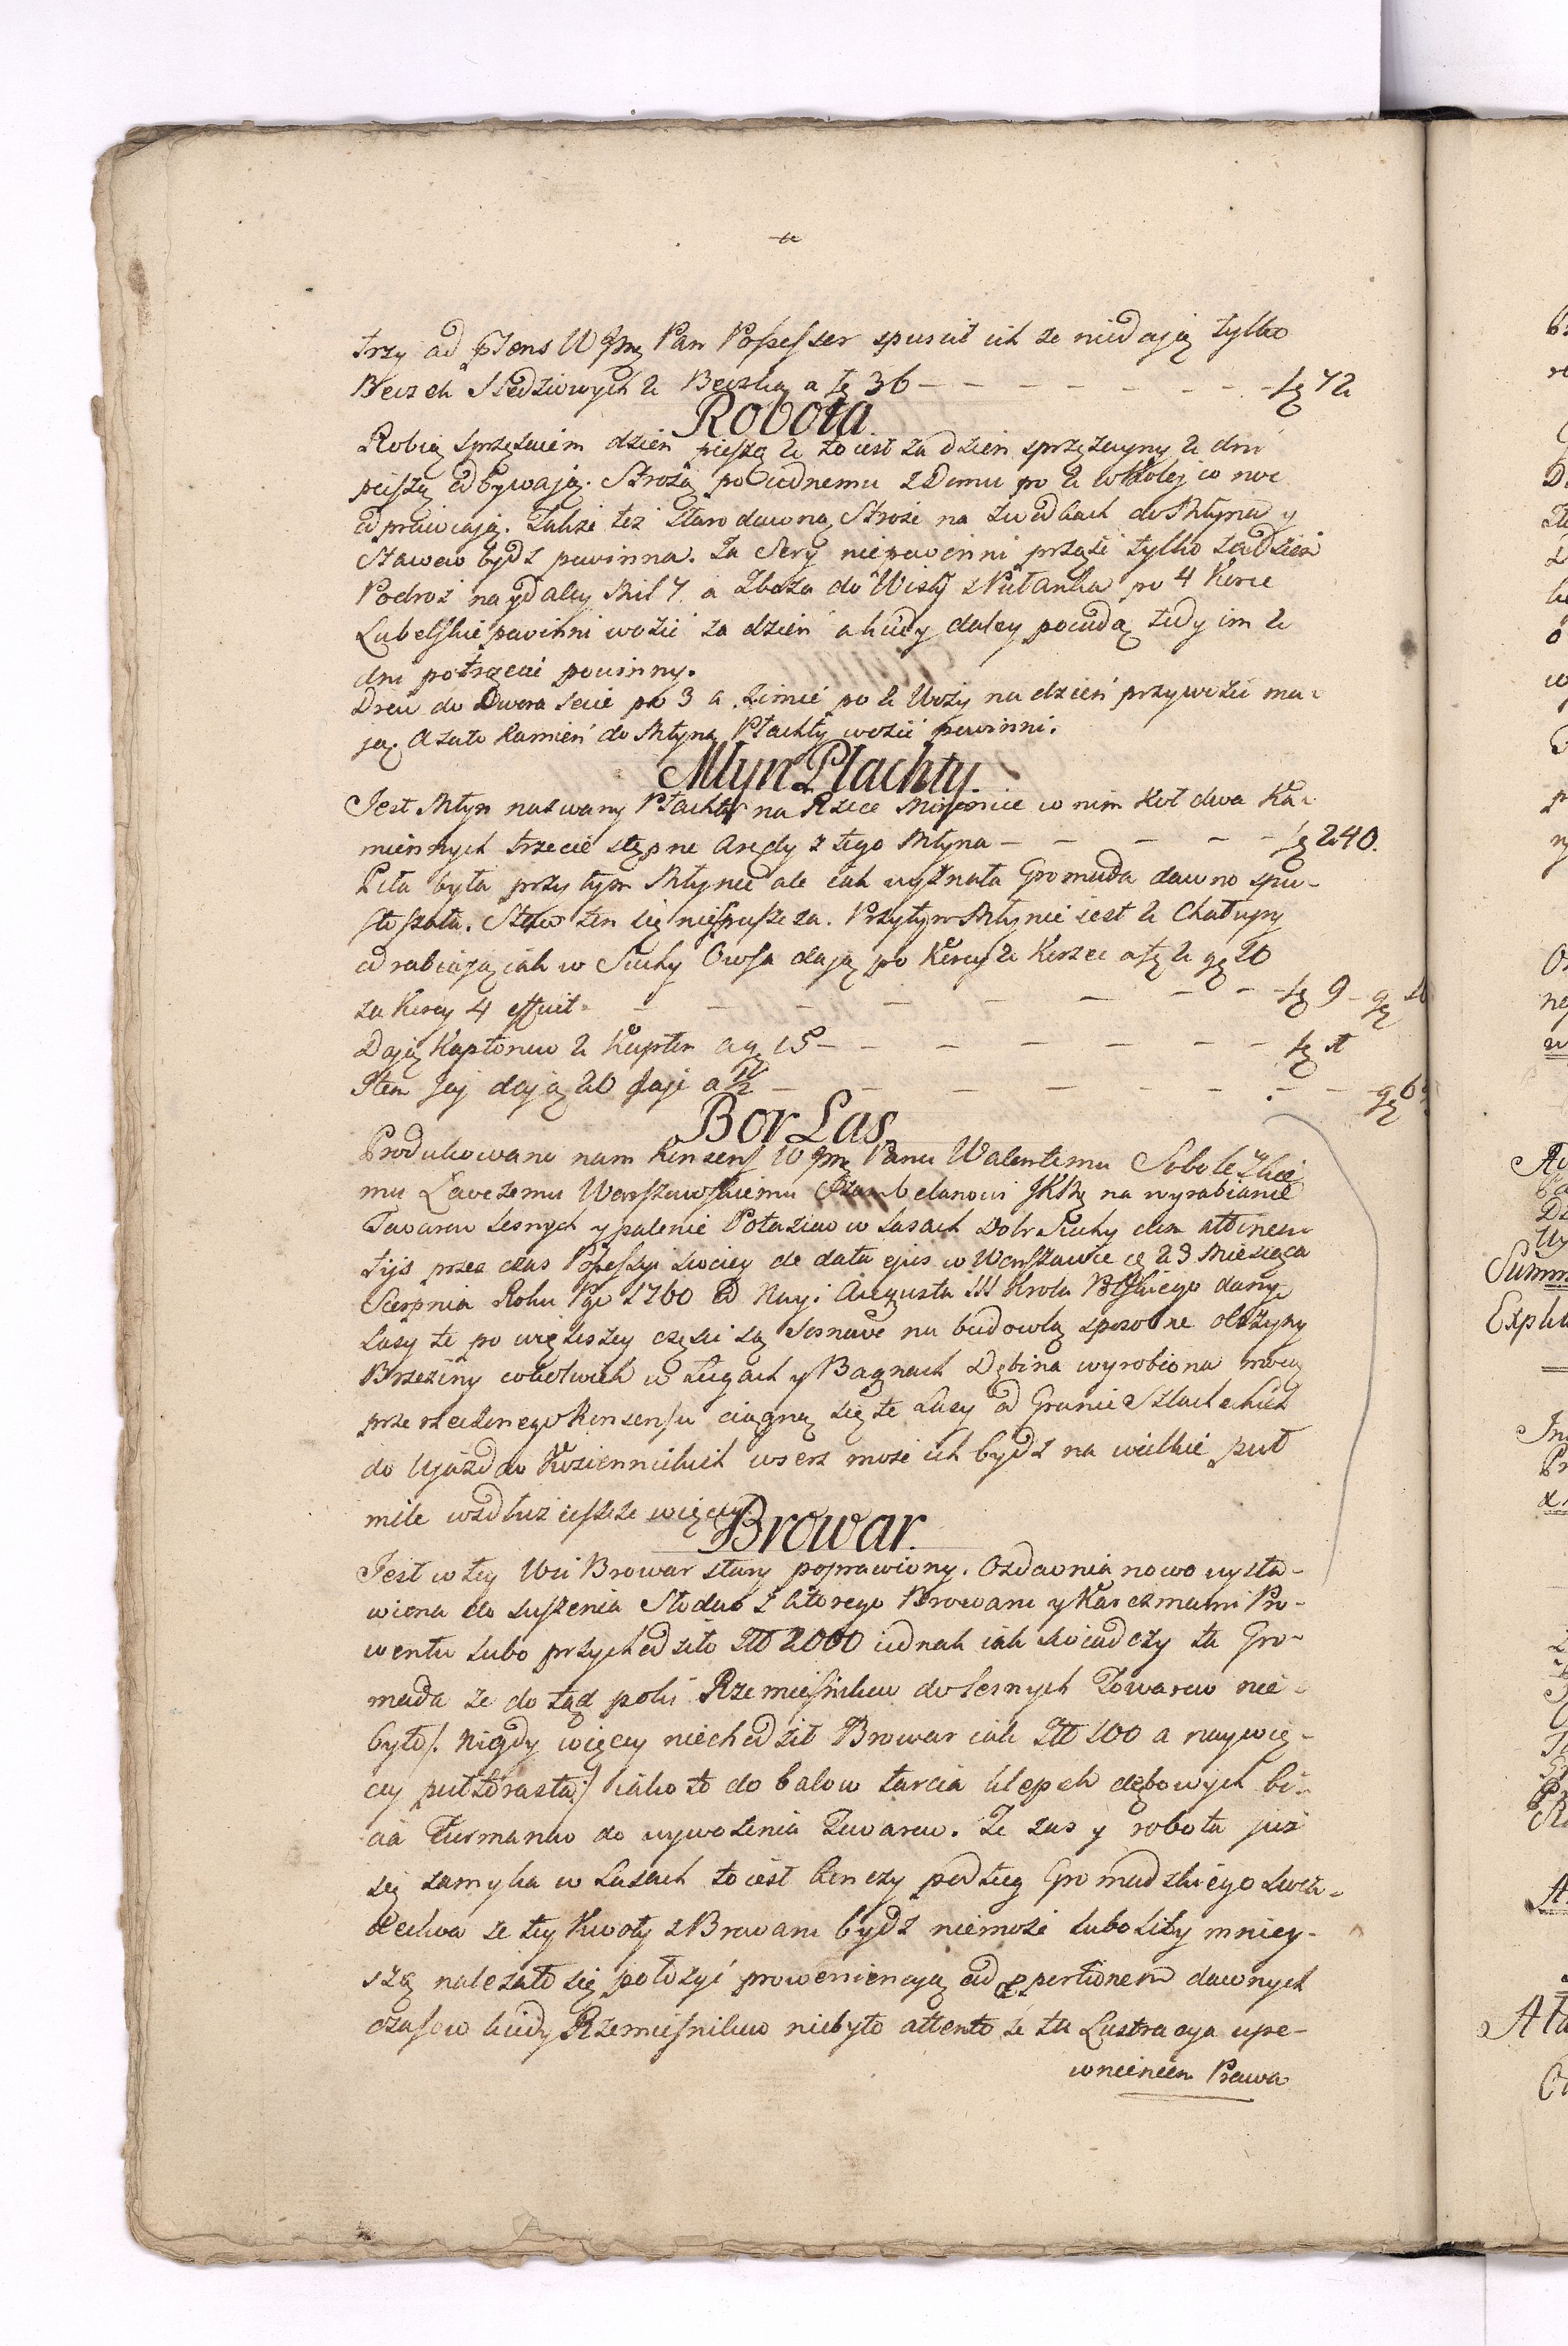 trzy ad psens W Jmć Pan Possessor spuscił ich ze niedaią tylko
Beczek Sledziowych 2 Beczką a fl 36 – – – – – – – – fl 72
Robota
Robią sprzężaiem dzien pieszą 2 to iest za dzien sprzężayny 2 dni
pieszę odbywaią. Strożą po iednemu z Domu po 2 w Koley co noc
odprawiaią. Także też starodawną Stroże na zwodkach do Młyna y
Stawow bydz powinna. Za Sery niepowinni prząść tylko zadzień
Podroż naydaley Mil 7. a Zboża do Wisły z Pułanku po 4 Korce
Lubelskie powinni wozić za dzień a kiedy daley poiadą tedy im 2
dni potrącić powinny.
Drew do Dwora lecie po 3 a zimie po 2 Wozy na dzień przywozić ma-
ią. A zato Kamień do Młyna Płachty wozić powinni.
Młyn Płachty.
Jest Młyn nazwany Płachty na Rzece w nim Koł dwa Ka-
miennych trzecie stępne Arędy z tego Młyna – – – – – fl 240.
Piła była przy tym Młynie ale iak wyznała Gromada dawno spu-
stoszała. Staw ten się niespuszcza. Przytym Młynie iest 2 Chałupy
odrabiaią iak w Suchy Owsa daią po Korcy 2 Korzec a fl 2 gr 20
za Korcy 4 efficit – – – – – – – – – fl 9 – gr 20
Daią Kapłonow 2 Kapłon a gr 15 – – – – – – fl 1
Item Jaj daią 20 Jaje a ½ – – – – – – – gr 6
Bor Las
Produkowano nam Konsens W Jmć Panu Walentemu Sobolewskie
mu Łowczemu Warszawskiemu Szambelanowi JKMci na wyrabianie
Towarow lesnych y palenie Potaziow w Lasach Dobr Suchy cum attinen
tijs przez czas Possessyi swoiey de data ejus w Warszawie d 23 Miesiąca
Sierpnia Roku Pgo 1760 od Nay: Augusta III Krola Polskiego dany.
Lasy te po większey części są Sosnowe na budowlą sposobne olszyny
Brzeziny cokolwiek w Ługach y Bagnach Dębina wyrobiona mocą
przerzeczonego Konsensu ciągną się te Lasy od Granic Szlacheckich
do Ujazdow Koziennickich wserz może ich bydz na wielkie puł
mile wzdłuz ieszcze więcey.
Browar.
Jest w tey Wsi Browar stary poprawiony. Ozdownia nowo wysta-
wiona do suszenia Słodow z ktorego Browaru y Karczmami Pro-
wentu lubo przychodziło Złł 2000 iednak iak swiadczy ta Gro-
mada że do tąd poki Rzemieśnikow do lesnych Towarow nie
było/. nigdy więcey niechodził Browar iak Złł 100 a naywię-
cey pułtorasta/ iako to do balow tarcia klepek dębowych bi-
cia Furmanow do wywożenia Towarow. Że zas y robota już
się zamyka w Lasach to iest konczy podług Gromadzkiego swia-
dectwa że tey Kwoty z Browaru bydz niemoże lubo siły mniey-
szą należało się położyć proweniencyą ad proportionem dawnych
czasow kiedy Rzemieśnikow niebyło attento że ta Lustracya upe-
wnieniem Prawa